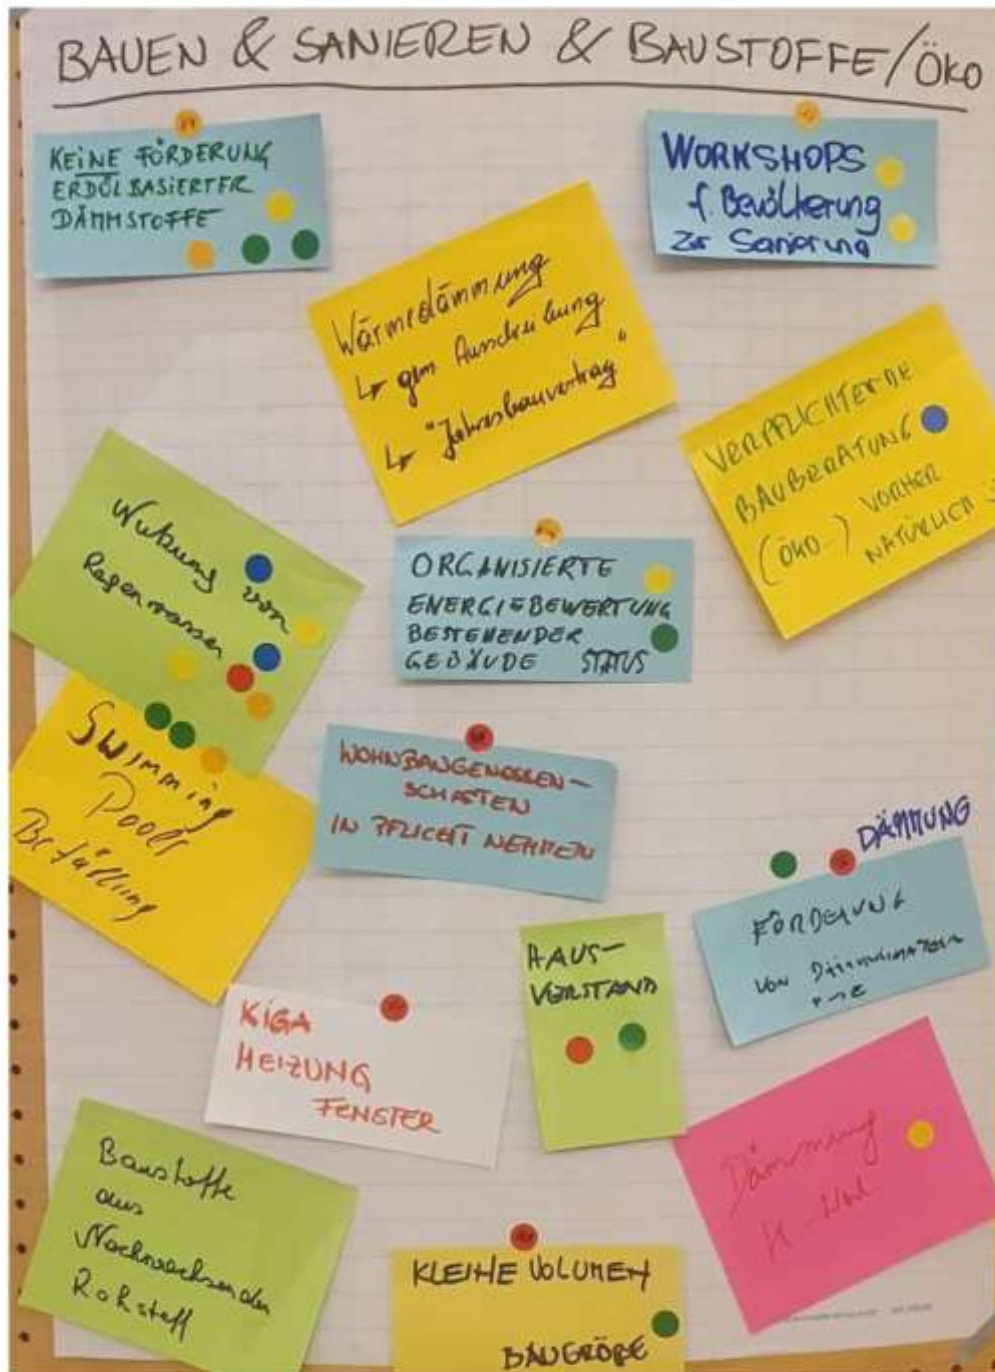 BAUEN & SANIEREN & BAUSTOFFE/ÖKO
KEINE FÖRDERUNG
ERDÖLBASIERTER
DÄMMSTOFFE
WORKSHOPS
f. Bevölkerung
zur Sanierung
Wärmedämmung
↳ gem Ausschreibung
↳ "Jahresbauvertrag"
VERPFLICHTENDE
BAUBERATUNG
(ÖKO..) VORHER
NATÜRLICH
Regenwasser
ORGANISIERTE
ENERGIEBEWERTUNG
BESTEHENDER
GEBÄUDE STATUS
SWimming
Pool
Befüllung
WOHNBAUGENOSSEN-
SCHAFTEN
IN PFLICHT NEHMEN
DÄMMUNG
FÖRDERUNG
VON
HAUS-
VERSTAND
KIGA
HEIZUNG
FENSTER
Dämmung
Baustoffe
aus
Nachwachsenden
Rohstoff
KLEINE VOLUMEN
BAUGRÖßE